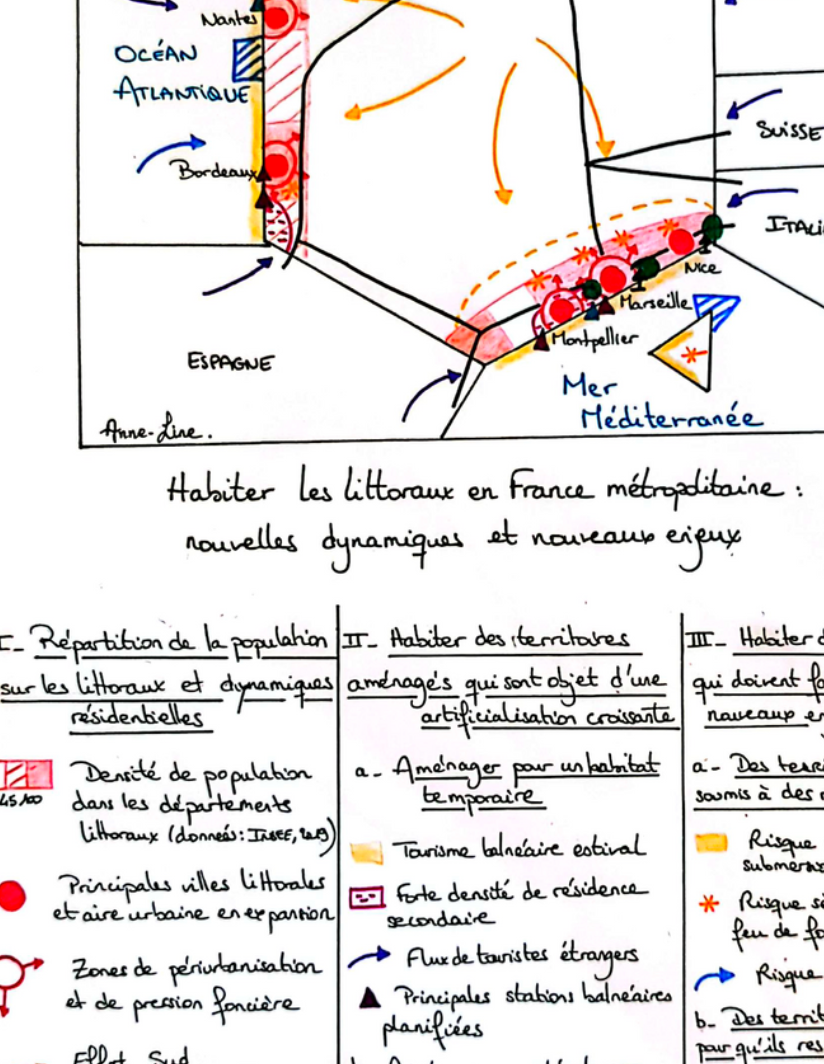 Nantes
OCÉAN
ATLANTIQUE
Bordeaux
SUISSE
ITALI
Nice
Marseille
Montpellier
ESPAGNE
Mer
Méditerranée
Anne-Line.
Habiter les littoraux en France métropolitaine :
nouvelles dynamiques et nouveaux enjeux
I- Répartition de la population
sur les littoraux et dynamiques
résidentielles
Densité de population
dans les départements
littoraux (données: INSEE, 2019)
45 100
Principales villes littorales
et aire urbaine en expansion
Zones de périurbanisation
et de pression foncière
Effet Sud
II- Habiter des territoires
aménagés qui sont objet d'une
artificialisation croissante
a- Aménager pour un habitat
temporaire
Tourisme balnéaire estival
Forte densité de résidence
secondaire
Flux de touristes étrangers
Principales stations balnéaires
planifiées
III- Habiter d
qui doivent fa
nouveaux en
a- Des terri
soumis à des r
Risque
submers
Risque si
feu de fo
Risque
b- Des territ
pour qu'ils res